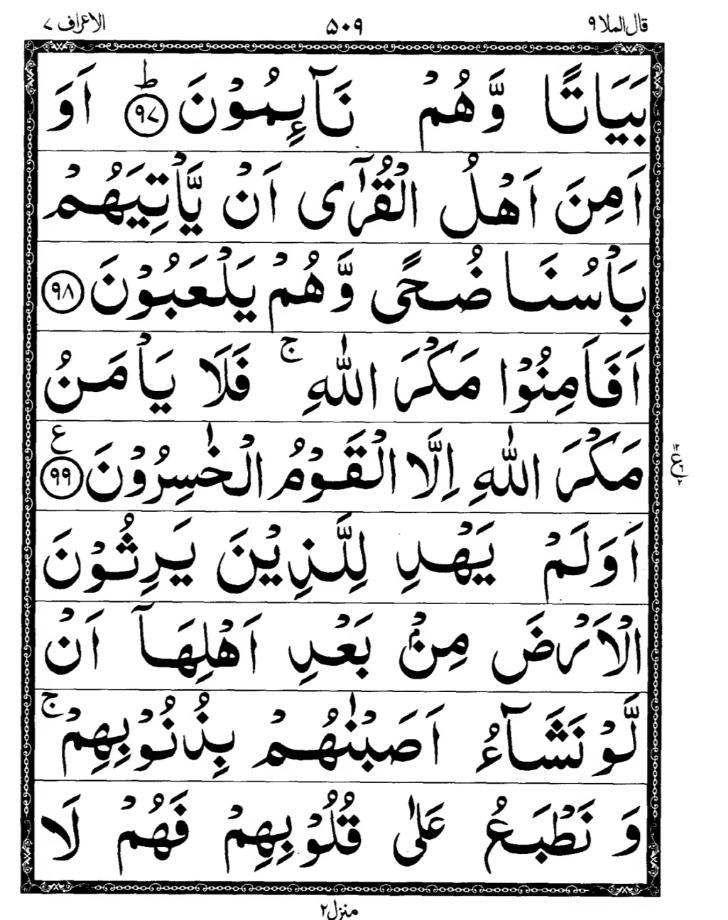 قال الملا ٩ ٥٠٩ الاعراف ٧
بَيَاتًا وَّهُمْ نَآئِمُوْنَ ؕ ﴿٩٧﴾ اَوَ
اَمِنَ اَهْلُ الْقُرٰٓى اَنْ يَّاْتِيَهُمْ
بَاْسُنَا ضُحًى وَّهُمْ يَلْعَبُوْنَ ﴿٩٨﴾
اَفَاَمِنُوْا مَكْرَ اللّٰهِ ۚ فَلَا يَاْمَنُ
مَكْرَ اللّٰهِ اِلَّا الْقَوْمُ الْخٰسِرُوْنَ ﴿٩٩﴾ ع
١٢ ع ٢
اَوَلَمْ يَهْدِ لِلَّذِيْنَ يَرِثُوْنَ
الْاَرْضَ مِنْۢ بَعْدِ اَهْلِهَاۤ اَنْ
لَّوْ نَشَآءُ اَصَبْنٰهُمْ بِذُنُوْبِهِمْ ۚ
وَ نَطْبَعُ عَلٰى قُلُوْبِهِمْ فَهُمْ لَا
منزل ٢